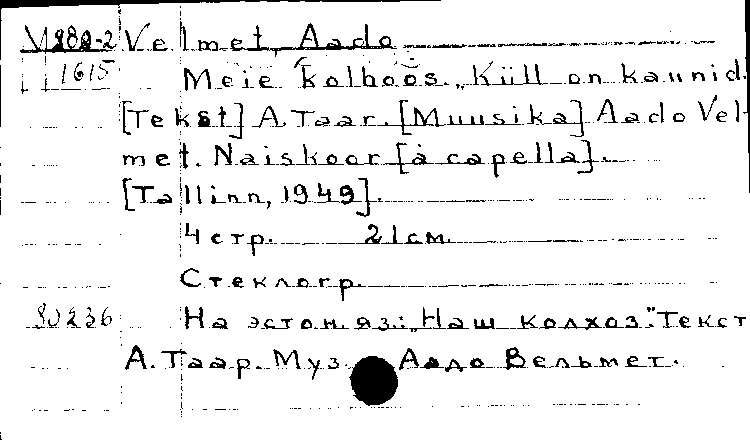 M 282-2 Velmet, Aado
1615 Meie kolhoos. „Küll on kaunid.
[Tekst] A. Taar. [Muusika] Aado Vel-
met. Naiskoor [à capella].
[Tallinn, 1949].
4 стр. 21 см.
Стеклогр.
80236 На эстон. яз.: „Наш колхоз." Текст
А. Таар. Муз. Аадо Вельмет.